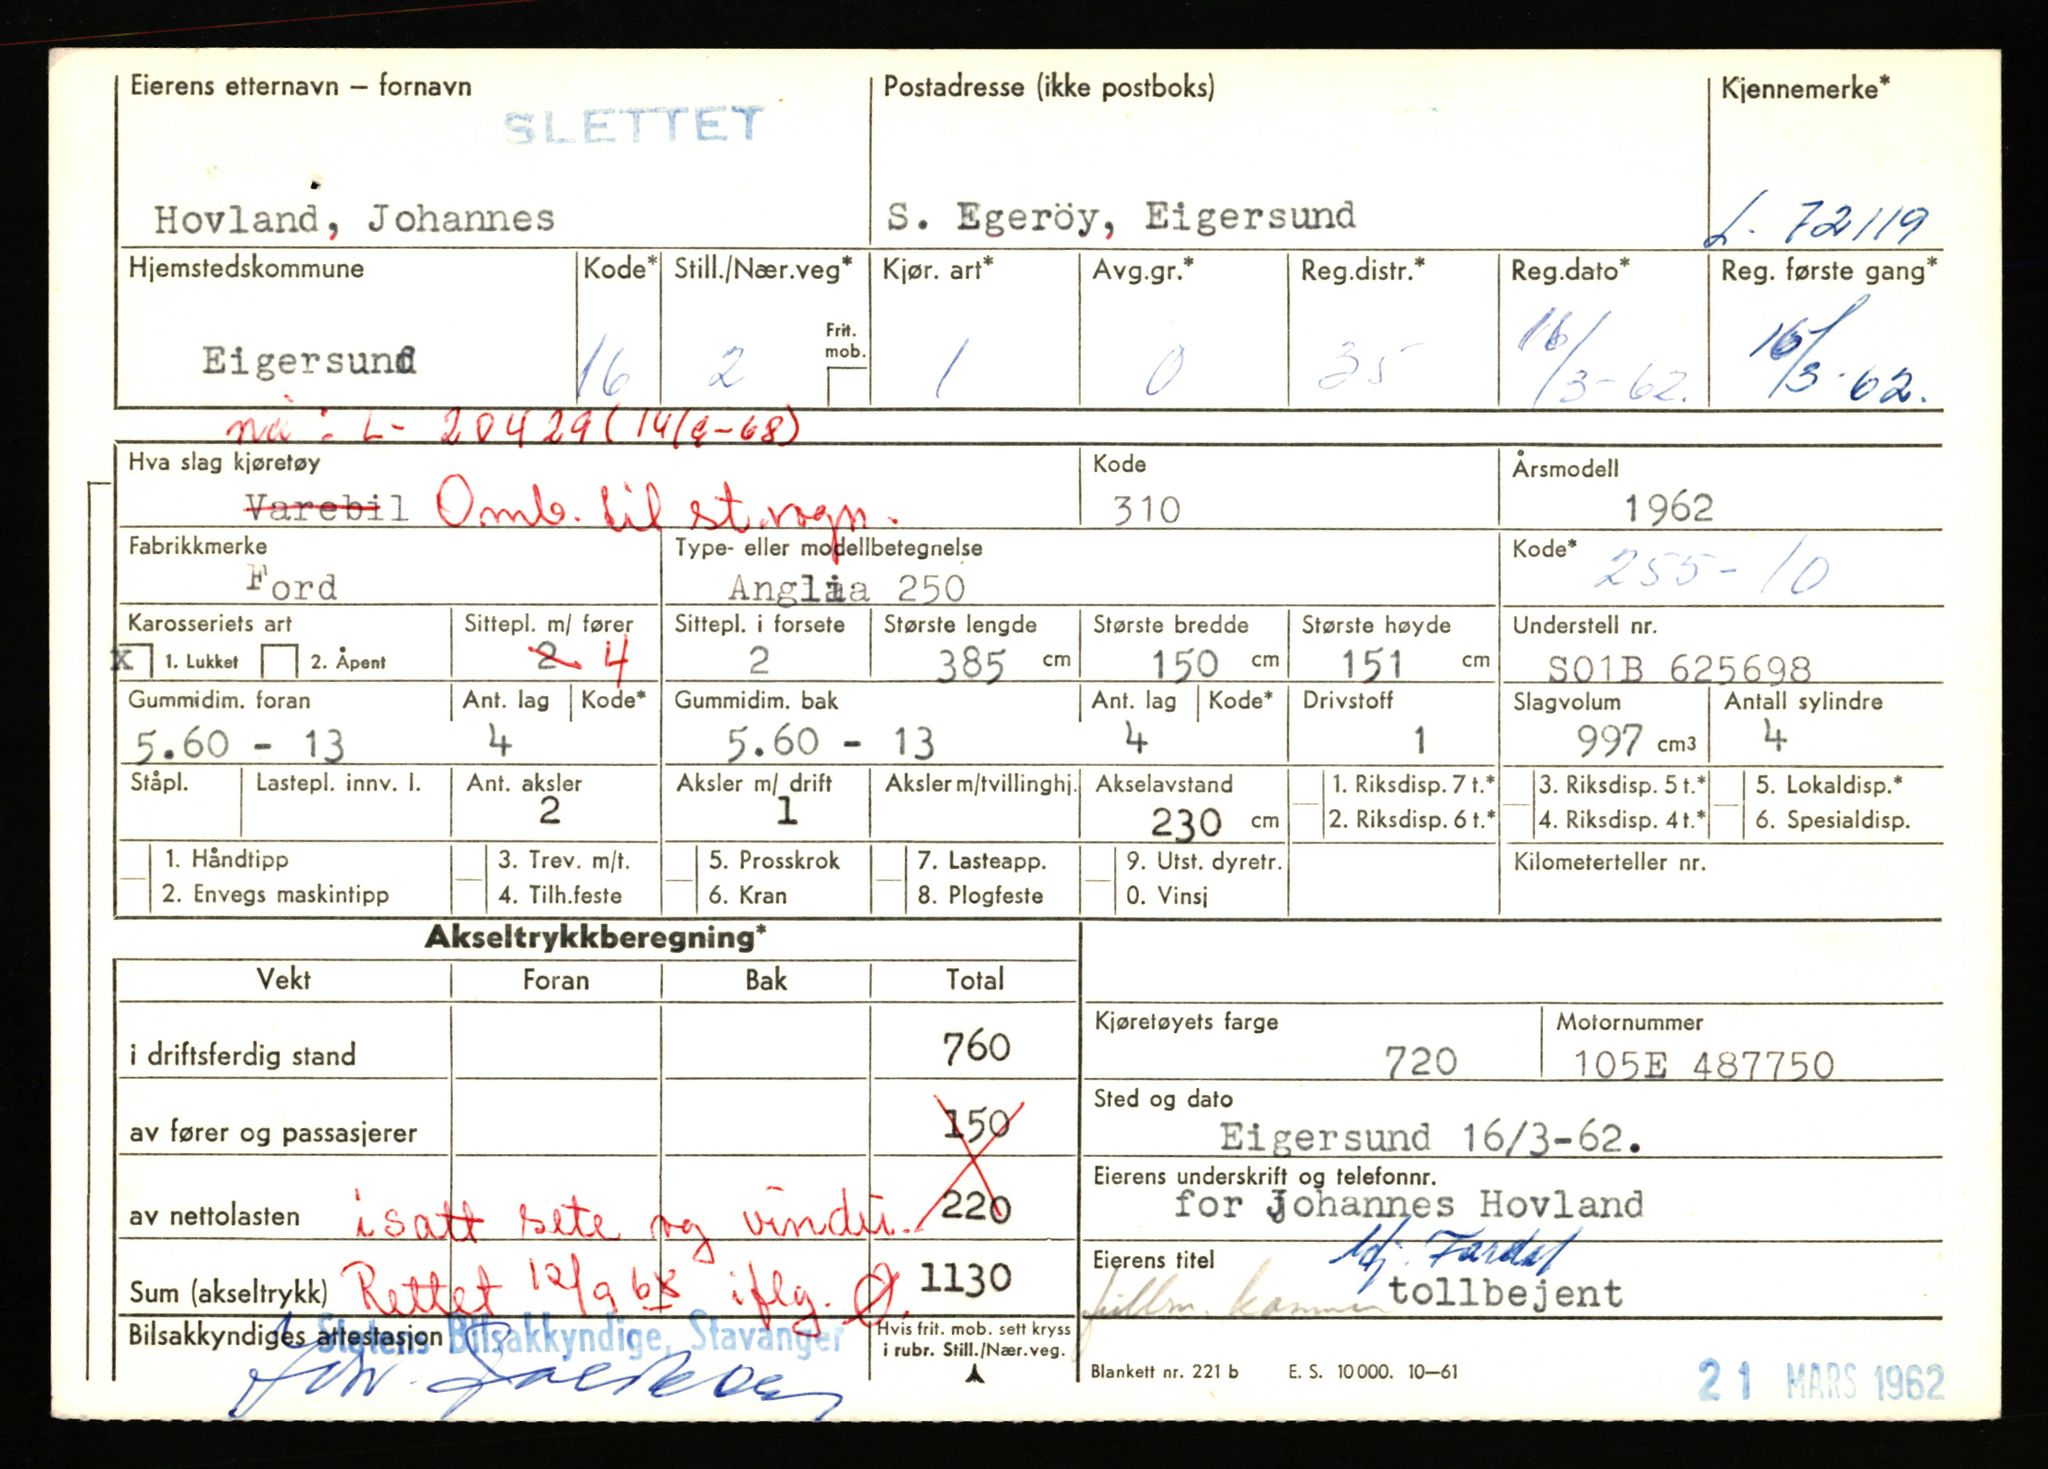 Eierens etternavn – fornavn Postadresse (ikke postboks) Kjennemerke*
SLETTET
Hovland, Johannes S. Egeröy, Eigersund L. 72119
Hjemstedskommune Kode* Still./Nær.veg* Kjør. art* Avg.gr.* Reg.distr.* Reg.dato* Reg. første gang*
Frit. mob.
Eigersund 16 2 1 0 35 16/3-62. 16/3-62.
nå: L- 20429 (14/9-68)
Hva slag kjøretøy Kode Årsmodell
Varebil Omb. til st.vogn. 310 1962
Fabrikkmerke Type- eller modellbetegnelse Kode*
Ford Anglia 250 255-10
Karosseriets art Sittepl. m/ fører Sittepl. i forsete Største lengde Største bredde Største høyde Understell nr.
X 1. Lukket 2. Åpent 2 4 2 385 cm 150 cm 151 cm S01B 625698
Gummidim. foran Ant. lag Kode* Gummidim. bak Ant. lag Kode* Drivstoff Slagvolum Antall sylindre
5.60 - 13 4 5.60 - 13 4 1 997 cm3 4
Ståpl. Lastepl. innv. l. Ant. aksler Aksler m/ drift Aksler m/tvillinghj. Akselavstand 1. Riksdisp. 7 t.* 3. Riksdisp. 5 t.* 5. Lokaldisp.*
2 1 230 cm 2. Riksdisp. 6 t.* 4. Riksdisp. 4 t.* 6. Spesialdisp.
1. Håndtipp 3. Trev. m/t. 5. Prosskrok 7. Lasteapp. 9. Utst. dyretr. Kilometerteller nr.
2. Envegs maskintipp 4. Tilh.feste 6. Kran 8. Plogfeste 0. Vinsj
Akseltrykkberegning*
Vekt Foran Bak Total
Kjøretøyets farge Motornummer
i driftsferdig stand 760 720 105E 487750
Sted og dato
av fører og passasjerer 150 Eigersund 16/3-62.
Eierens underskrift og telefonnr.
av nettolasten isatt sete og vindu. 220 for Johannes Hovland
Eierens titel
Sum (akseltrykk) Rettet 12/9 68 iflg. 1130 tollbejent
Bilsakkyndiges attestasjon Statens Bilsakkyndige, Stavanger
Hvis frit. mob. sett kryss
i rubr. Still./Nær.veg.
Blankett nr. 221 b E. S. 10 000. 10–61 21 MARS 1962